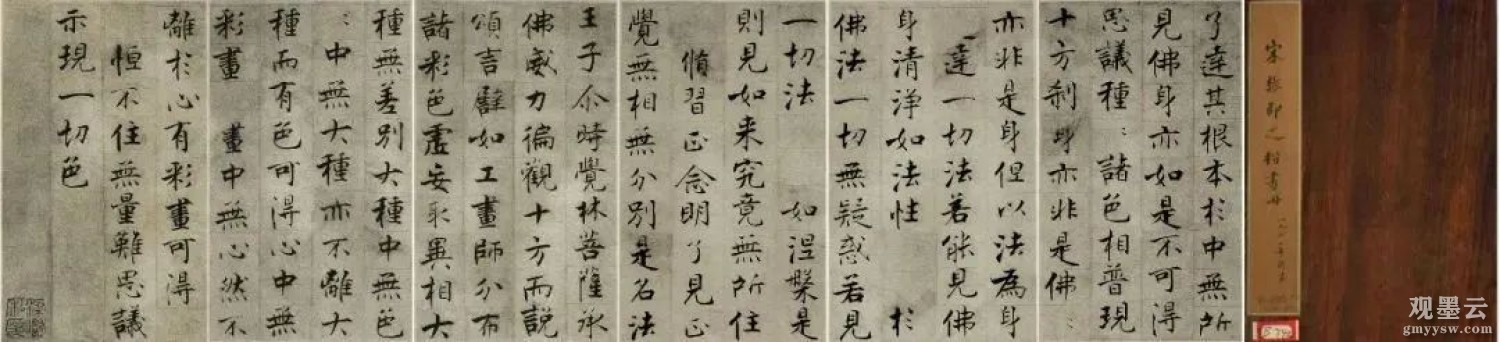 了達其根本於中無所
見佛身亦如是不可得
思議種〻諸色相普現
十方刹身亦非是佛〻
亦非是身但以法為身
達一切法若能見佛
身清淨如法性 於
佛法一切無疑惑若見
一切法 如涅槃是
則見如来究竟無所住
脩習正念明了見正
覺無相無分別是名法
王子尒時覺林菩薩承
佛威力徧觀十方而說
頌言譬如工畫師分布
諸彩色虛妄取異相大
種無差別大種中無色
〻中無大種亦不離大
種而有色可得心中無
彩畫 畫中無心然不
離於心有彩畫可得
恒不住無量難思議
示現一切色
宋張即之楷書冊
观墨云
gmyysw.com